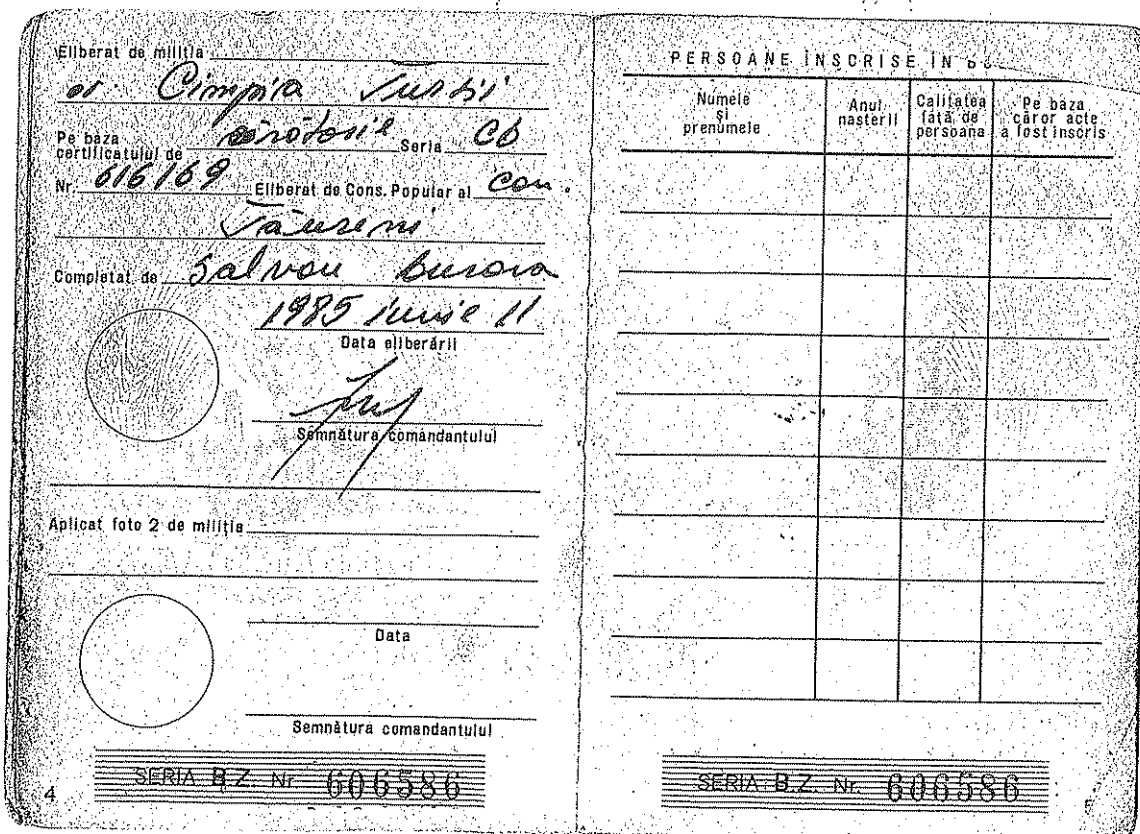 Eliberat de miliția
or. Cîmpia Turzii
Pe baza
certificatului de căsătorie Seria Cb
Nr. 616169 Eliberat de Cons. Popular al com.
Tăureni
Completat de Salvan
1985 iunie 11
Data eliberării
Semnătura comandantului
Aplicat foto 2 de miliția
Data
Semnătura comandantului
SERIA B.Z. Nr. 606586
4
PERSOANE ÎNSCRISE ÎN
Numele
și
prenumele
Anul
nașterii
Calitatea
față de
persoana
Pe baza
căror acte
a fost înscris
SERIA B.Z. Nr. 606586